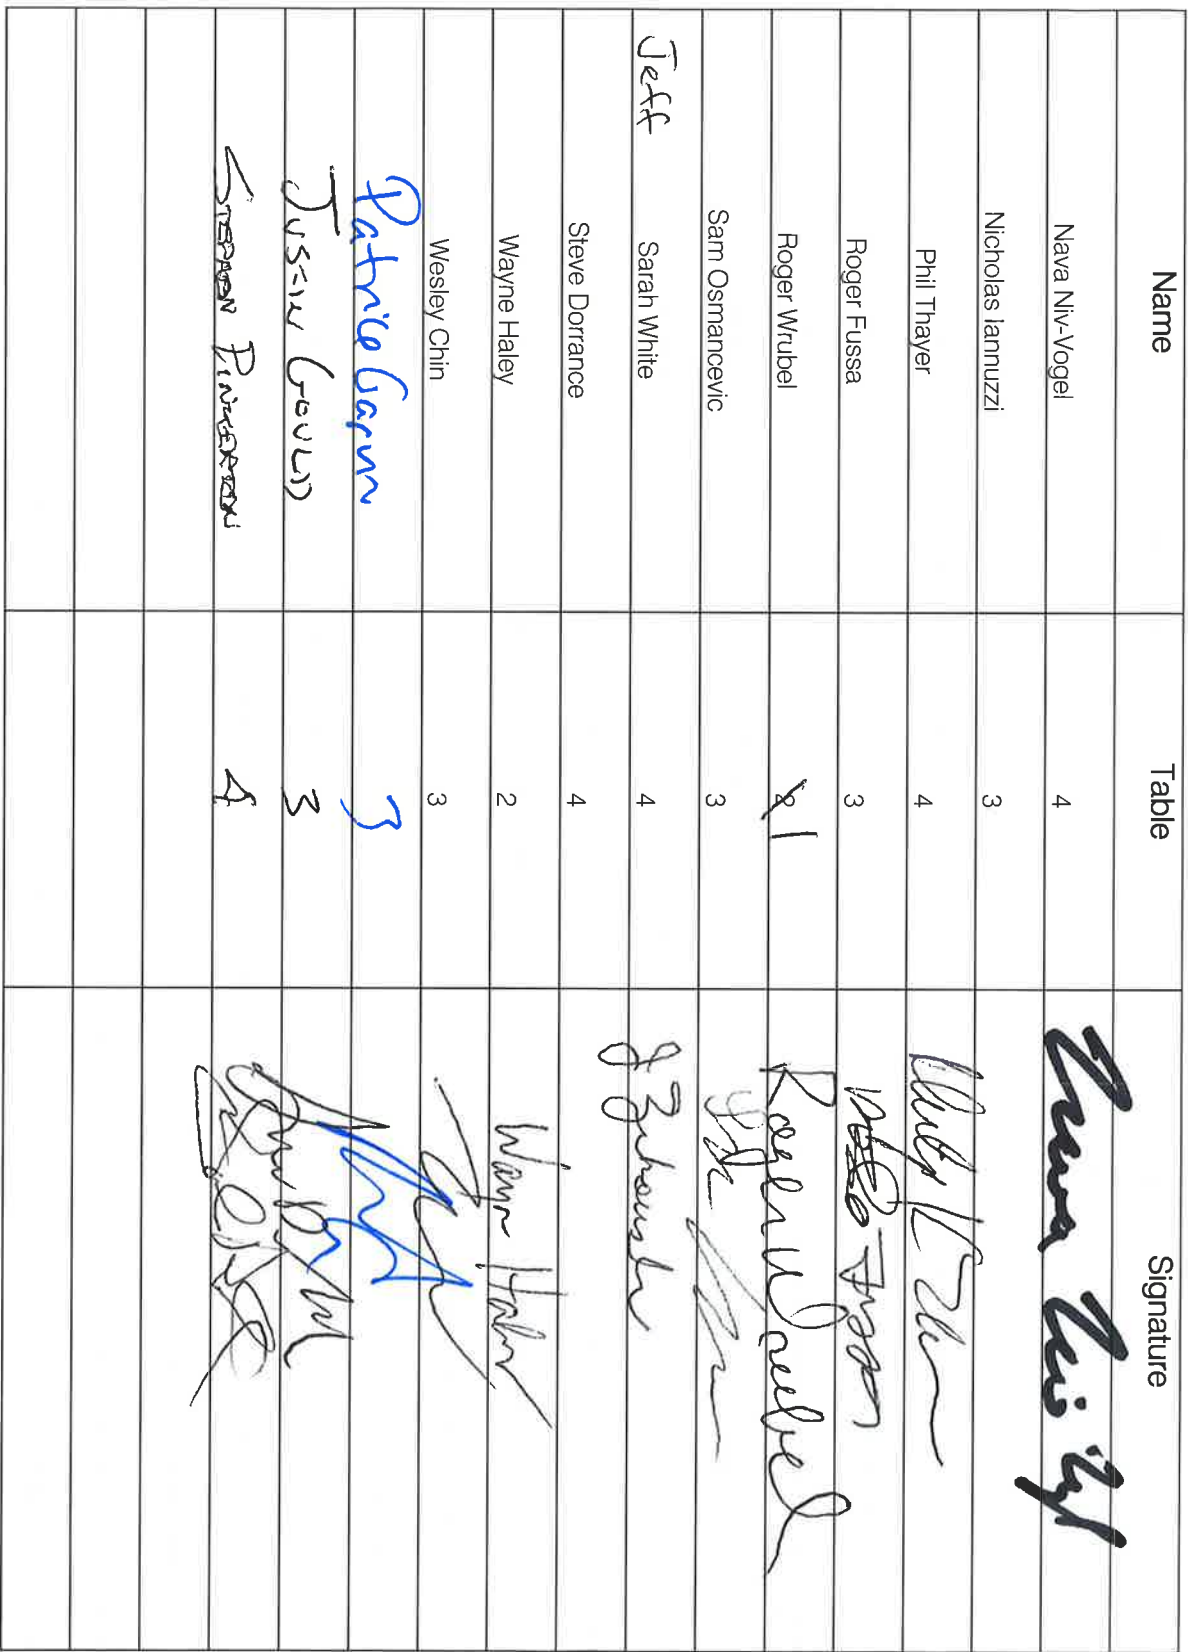 Name Table Signature
Nava Niv-Vogel 4
Nicholas Iannuzzi 3
Phil Thayer 4
Roger Fussa 3
Roger Wrubel 2 1 Roger Wrubel
Sam Osmancevic 3
Jeff Sarah White 4
Steve Dorrance 4
Wayne Haley 2
Wesley Chin 3
Patrice Garvin 3
Justin Gould 3
Stephen Pinkerton 4